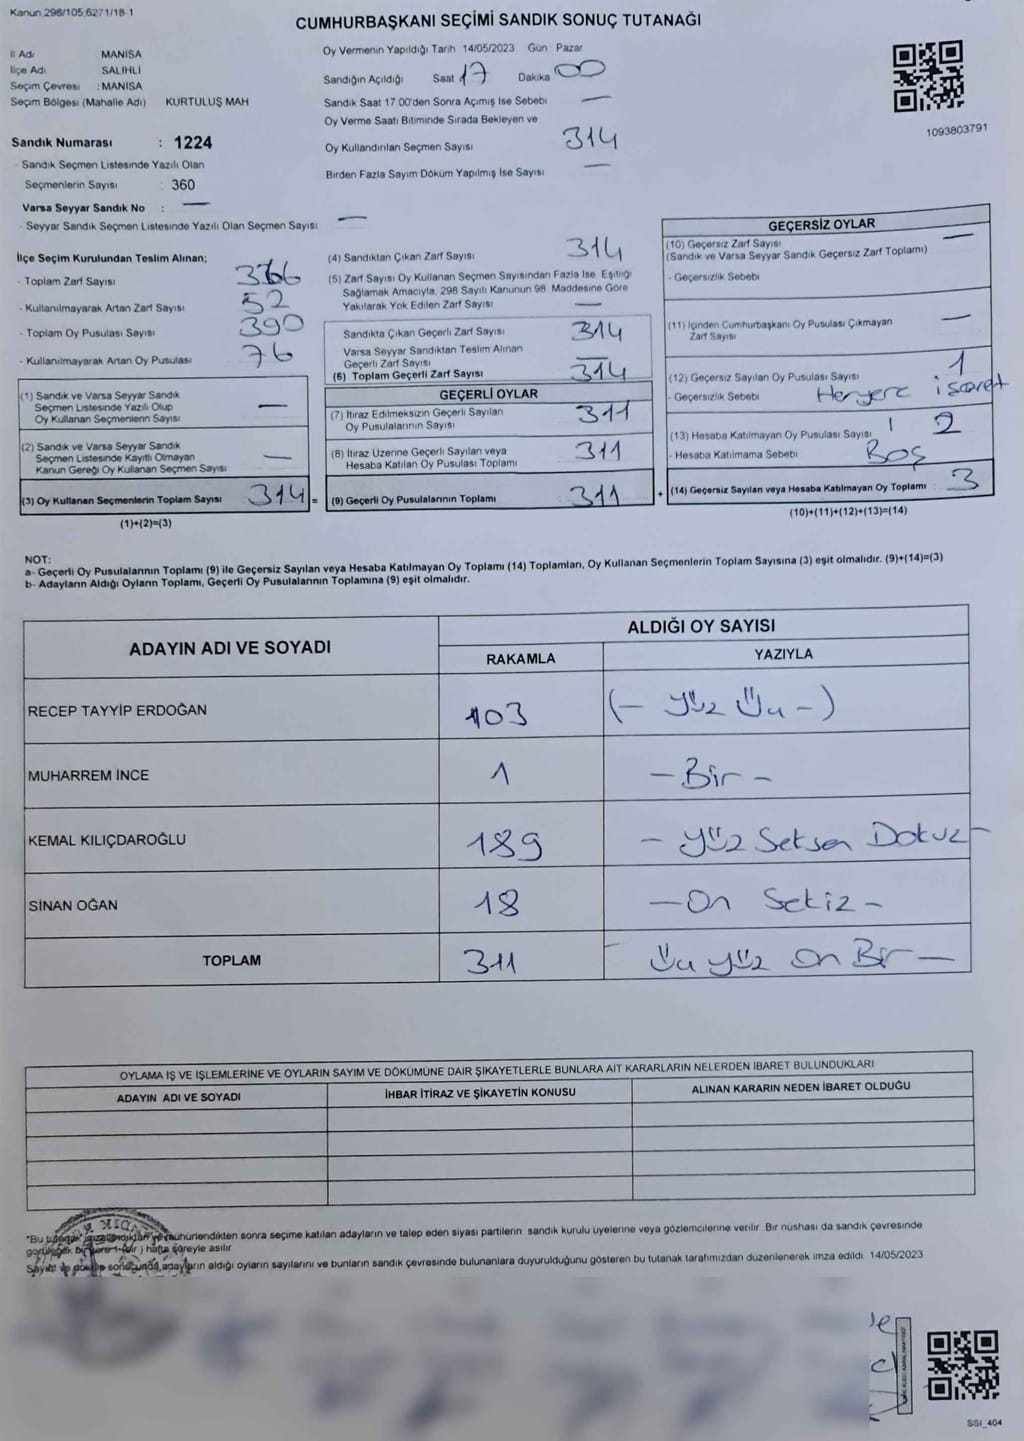 Kanun,298/105,6271/18-1
CUMHURBAŞKANI SEÇİMİ SANDIK SONUÇ TUTANAĞI
İl Adı MANİSA
İlçe Adı SALİHLİ
Seçim Çevresi : MANİSA
Seçim Bölgesi (Mahalle Adı) KURTULUŞ MAH
Sandık Numarası : 1224
- Sandık Seçmen Listesinde Yazılı Olan
Seçmenlerin Sayısı : 360
Varsa Seyyar Sandık No : —
- Seyyar Sandık Seçmen Listesinde Yazılı Olan Seçmen Sayısı —
Oy Vermenin Yapıldığı Tarih 14/05/2023 Gün Pazar
Sandığın Açıldığı Saat 17 Dakika 00
Sandık Saat 17.00'den Sonra Açımış İse Sebebi —
Oy Verme Saati Bitiminde Sırada Bekleyen ve
Oy Kullandırılan Seçmen Sayısı 314
Birden Fazla Sayım Döküm Yapılmış İse Sayısı —
1093803791
İlçe Seçim Kurulundan Teslim Alınan;
- Toplam Zarf Sayısı 366
- Kullanılmayarak Artan Zarf Sayısı 52
- Toplam Oy Pusulası Sayısı 390
- Kullanılmayarak Artan Oy Pusulası 76
(1) Sandık ve Varsa Seyyar Sandık
Seçmen Listesinde Yazılı Olup
Oy Kullanan Seçmenlerin Sayısı —
(2) Sandık ve Varsa Seyyar Sandık
Seçmen Listesinde Kayıtlı Olmayan
Kanun Gereği Oy Kullanan Seçmen Sayısı —
(3) Oy Kullanan Seçmenlerin Toplam Sayısı 314 =
(1)+(2)=(3)
(4) Sandıktan Çıkan Zarf Sayısı 314
(5) Zarf Sayısı Oy Kullanan Seçmen Sayısından Fazla İse, Eşitliği
Sağlamak Amacıyla, 298 Sayılı Kanunun 98. Maddesine Göre
Yakılarak Yok Edilen Zarf Sayısı —
Sandıkta Çıkan Geçerli Zarf Sayısı 314
Varsa Seyyar Sandıktan Teslim Alınan
Geçerli Zarf Sayısı —
(6) Toplam Geçerli Zarf Sayısı 314
GEÇERLİ OYLAR
(7) İtiraz Edilmeksizin Geçerli Sayılan
Oy Pusulalarının Sayısı 311
(8) İtiraz Üzerine Geçerli Sayılan veya
Hesaba Katılan Oy Pusulası Toplamı 311
(9) Geçerli Oy Pusulalarının Toplamı 311 +
GEÇERSİZ OYLAR
(10) Geçersiz Zarf Sayısı —
(Sandık ve Varsa Seyyar Sandık Geçersiz Zarf Toplamı)
- Geçersizlik Sebebi
(11) İçinden Cumhurbaşkanı Oy Pusulası Çıkmayan
Zarf Sayısı —
(12) Geçersiz Sayılan Oy Pusulası Sayısı 1
- Geçersizlik Sebebi Heryere işaret
(13) Hesaba Katılmayan Oy Pusulası Sayısı 2
- Hesaba Katılmama Sebebi Boş
(14) Geçersiz Sayılan veya Hesaba Katılmayan Oy Toplamı 3
(10)+(11)+(12)+(13)=(14)
NOT:
a- Geçerli Oy Pusulalarının Toplamı (9) ile Geçersiz Sayılan veya Hesaba Katılmayan Oy Toplamı (14) Toplamları, Oy Kullanan Seçmenlerin Toplam Sayısına (3) eşit olmalıdır. (9)+(14)=(3)
b- Adayların Aldığı Oyların Toplamı, Geçerli Oy Pusulalarının Toplamına (9) eşit olmalıdır.
ADAYIN ADI VE SOYADI ALDIĞI OY SAYISI
RAKAMLA YAZIYLA
RECEP TAYYİP ERDOĞAN 103 (- Yüz Üç -)
MUHARREM İNCE 1 - Bir -
KEMAL KILIÇDAROĞLU 189 - Yüz Seksen Dokuz -
SİNAN OĞAN 18 - On Sekiz -
TOPLAM 311 Üç yüz On Bir -
OYLAMA İŞ VE İŞLEMLERİNE VE OYLARIN SAYIM VE DÖKÜMÜNE DAİR ŞİKAYETLERLE BUNLARA AİT KARARLARIN NELERDEN İBARET BULUNDUKLARI
ADAYIN ADI VE SOYADI İHBAR İTİRAZ VE ŞİKAYETİN KONUSU ALINAN KARARIN NEDEN İBARET OLDUĞU
*Bu tutanak imzalandıktan ve mühürlendikten sonra seçime katılan adayların ve talep eden siyasi partilerin sandık kurulu üyelerine veya gözlemcilerine verilir. Bir nüshası da sandık çevresinde
görülecek bir yere 1 (bir) hafta süreyle asılır
Sayım ve döküm sonucunda adayların aldığı oyların sayılarını ve bunların sandık çevresinde bulunanlara duyurulduğunu gösteren bu tutanak tarafımızdan düzenlenerek imza edildi. 14/05/2023
SSI_404